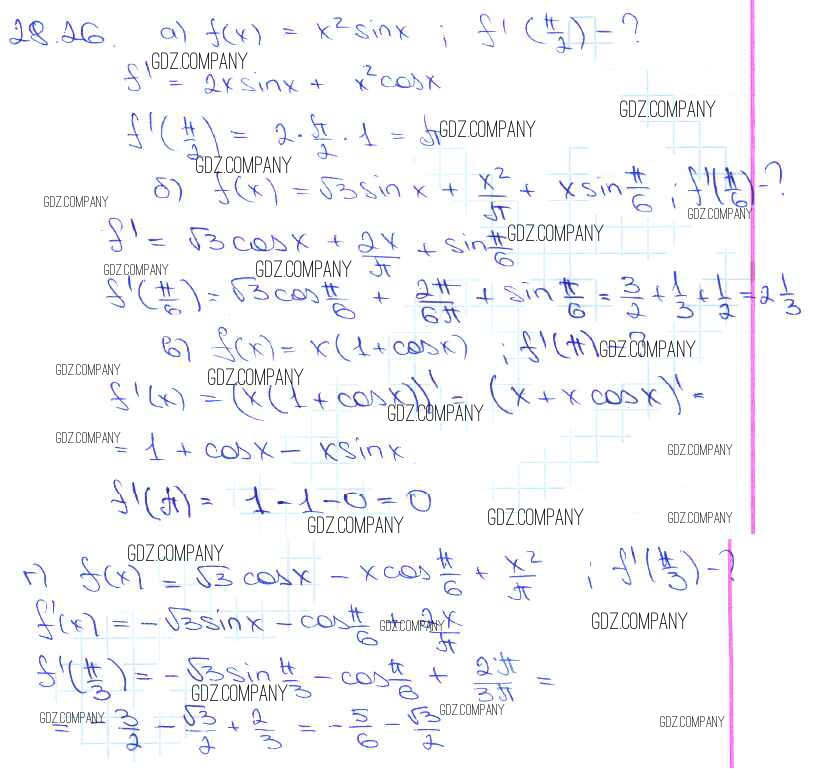 28.26. а) f(x) = x² sinx ; f'(π/2) - ?
GDZ.COMPANY
f' = 2x sinx + x² cosx
GDZ.COMPANY
f'(π/2) = 2 · π/2 · 1 = π
GDZ.COMPANY
GDZ.COMPANY
б) f(x) = √3 sin x + x²/π + x sin π/6 ; f'(π/6) - ?
GDZ.COMPANY
GDZ.COMPANY
f' = √3 cosx + 2x/π + sin π/6
GDZ.COMPANY
GDZ.COMPANY
GDZ.COMPANY
f'(π/6) = √3 cos π/6 + 2π/6π + sin π/6 = 3/2 + 1/3 + 1/2 = 2 1/3
в) f(x) = x(1 + cosx) ; f'(π) - ?
GDZ.COMPANY
GDZ.COMPANY
GDZ.COMPANY
f'(x) = (x(1 + cosx))' = (x + x cosx)' =
GDZ.COMPANY
GDZ.COMPANY
= 1 + cosx - x sinx
GDZ.COMPANY
f'(π) = 1 - 1 - 0 = 0
GDZ.COMPANY
GDZ.COMPANY
GDZ.COMPANY
GDZ.COMPANY
г) f(x) = √3 cosx - x cos π/6 + x²/π ; f'(π/3) - ?
f'(x) = -√3 sinx - cos π/6 + 2x/π
GDZ.COMPANY
GDZ.COMPANY
f'(π/3) = -√3 sin π/3 - cos π/6 + 2π/3π =
GDZ.COMPANY
GDZ.COMPANY
= - 3/2 - √3/2 + 2/3 = - 5/6 - √3/2
GDZ.COMPANY
GDZ.COMPANY